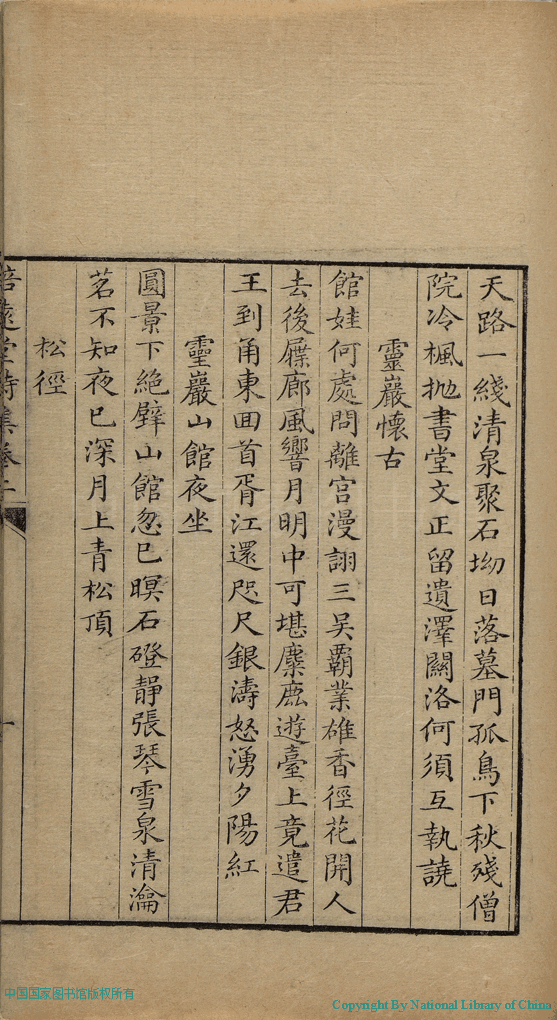 天路一綫清泉聚石坳日落墓門孤鳥下秋殘僧
院冷楓抛書堂文正留遺澤關洛何須互執譊
靈巖懷古
館娃何處問離宮漫詡三吴霸業雄香徑花開人
去後屧廊風響月明中可堪麋鹿遊臺上竟遣君
王到甬東囬首胥江還咫尺銀濤怒湧夕陽紅
靈巖山館夜坐
圓景下絶壁山館忽已暝石磴靜張琴雪泉清瀹
茗不知夜已深月上青松頂
松徑
培遠堂詩集卷二
一
中国国家图书馆版权所有
Copyright By National Library of China